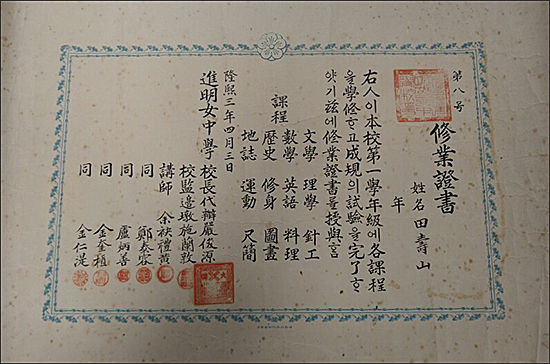 第八号
修業證書
姓名 田壽山
年
右人이本校第一學年級에各課程
을學修ᄒᆞ고成規의試驗을完了ᄒᆞ
얏기玆에修業證書를授與홈
課程
文學 理學 針工
數學 英語 料理
歷史 修身 圖畫
地誌 運動 尺簡
隆熙三年四月三日
進明女中學 校長代辦嚴俊源
校監邊墩施蘭敦
講師 余袂禮黃
同 鄭泰容
同 盧炳善
同 金奎植
同 金仁湜